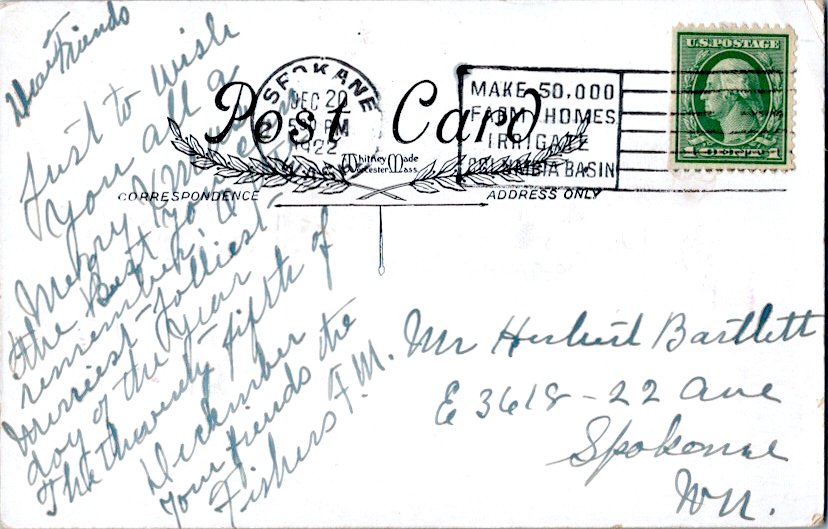 Dear Friends
Just to wish
you all a
Merry Xmas
the Best for
remember
Merriest-Jolliest-
day of the year
The Thwendy Fifth of
Deckember
your friends the
Fishers F.M.
SPOKANE
DEC 20
PM
1922
WASH.
MAKE 50,000
FARM HOMES
IRRIGATE
COLUMBIA BASIN
U.S. POSTAGE
1 CENT 1
Post Card
Whitney Made
Worcester Mass.
CORRESPONDENCE
ADDRESS ONLY
Mr Herbert Bartlett
E 3618-22 Ave
Spokane
Wn.